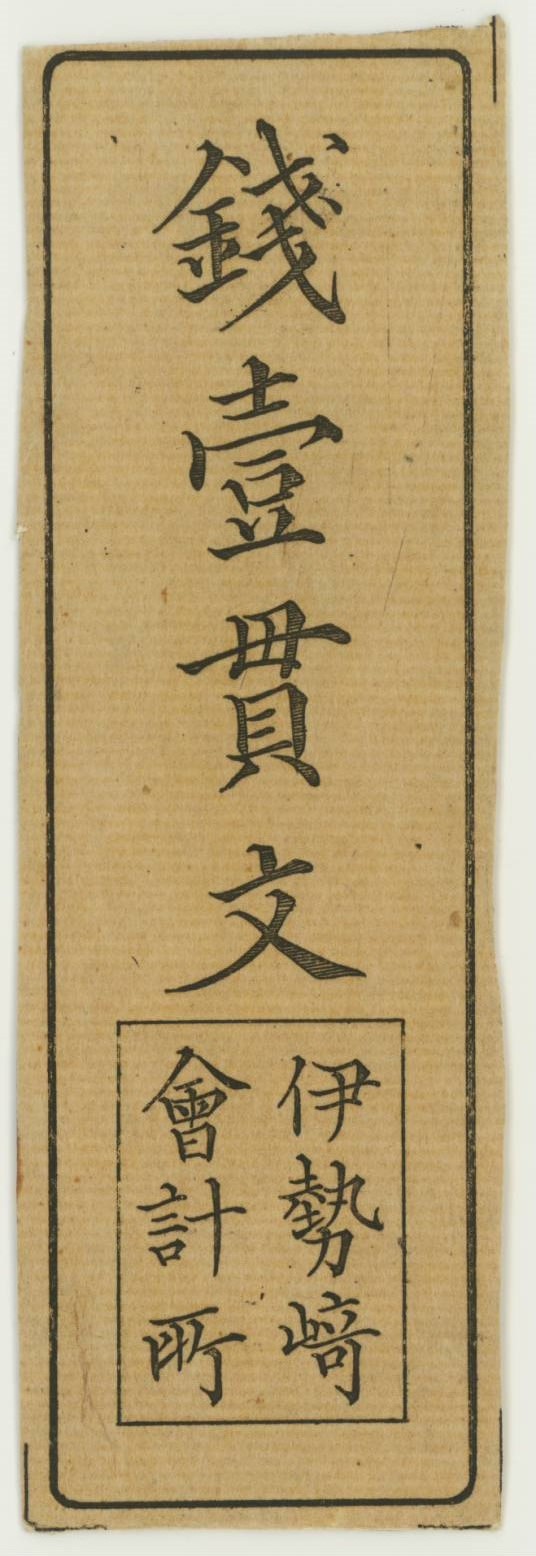 錢壹貫文
伊勢﨑
會計所